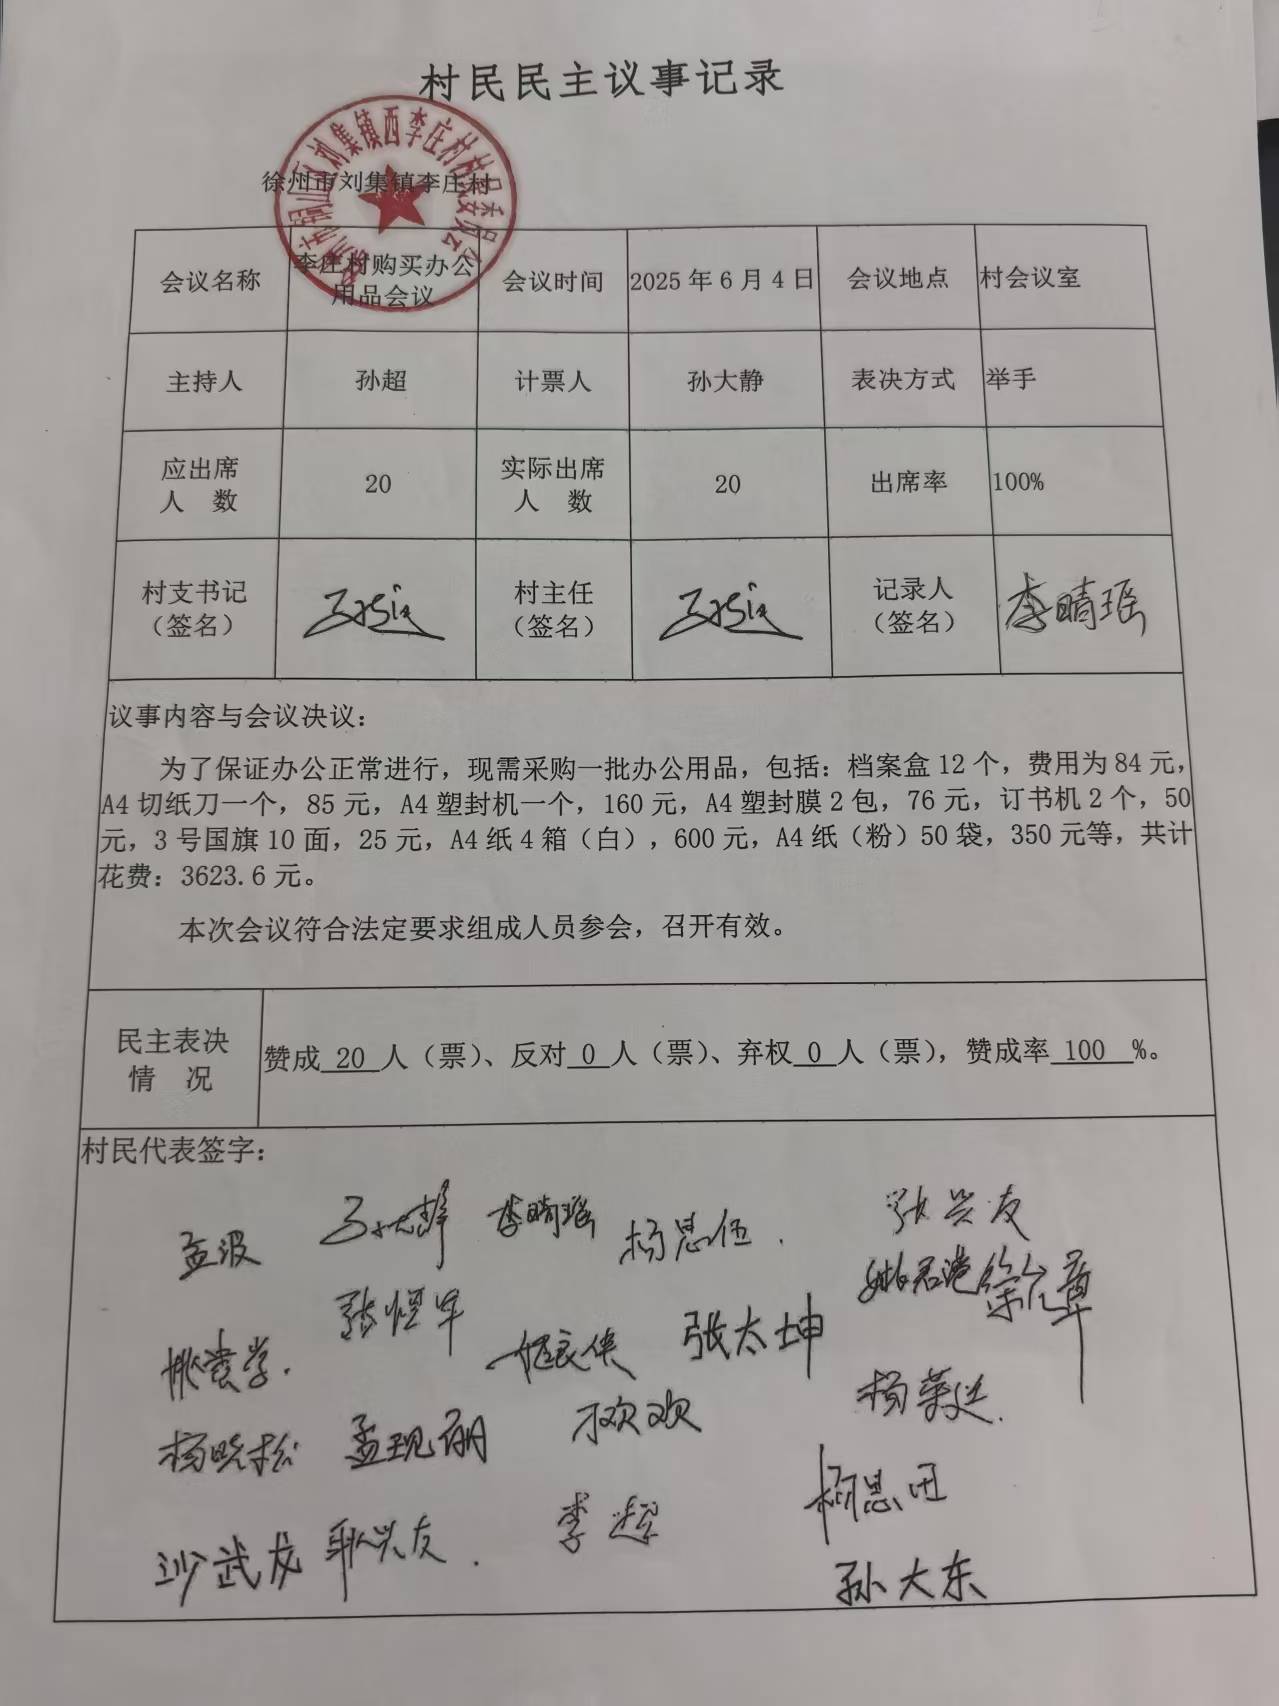 村民民主议事记录
徐州市刘集镇李庄村
会议名称 李庄村购买办公用品会议 会议时间 2025年6月4日 会议地点 村会议室
主持人 孙超 计票人 孙大静 表决方式 举手
应出席人 数 20 实际出席人 数 20 出席率 100%
村支书记（签名） 村主任（签名） 记录人（签名） 李晴瑶
议事内容与会议决议：
为了保证办公正常进行，现需采购一批办公用品，包括：档案盒12个，费用为84元，
A4切纸刀一个，85元，A4塑封机一个，160元，A4塑封膜2包，76元，订书机2个，50
元，3号国旗10面，25元，A4纸4箱（白），600元，A4纸（粉）50袋，350元等，共计
花费：3623.6元。
本次会议符合法定要求组成人员参会，召开有效。
民主表决情 况 赞成 20 人（票）、反对 0 人（票）、弃权 0 人（票），赞成率 100 %。
村民代表签字：
孟波 李晴瑶 杨思伍 张兴友
张太坤
杨晓松 孟现朋 杨荣廷
沙武龙 耿兴友 李超 杨思田
孙大东